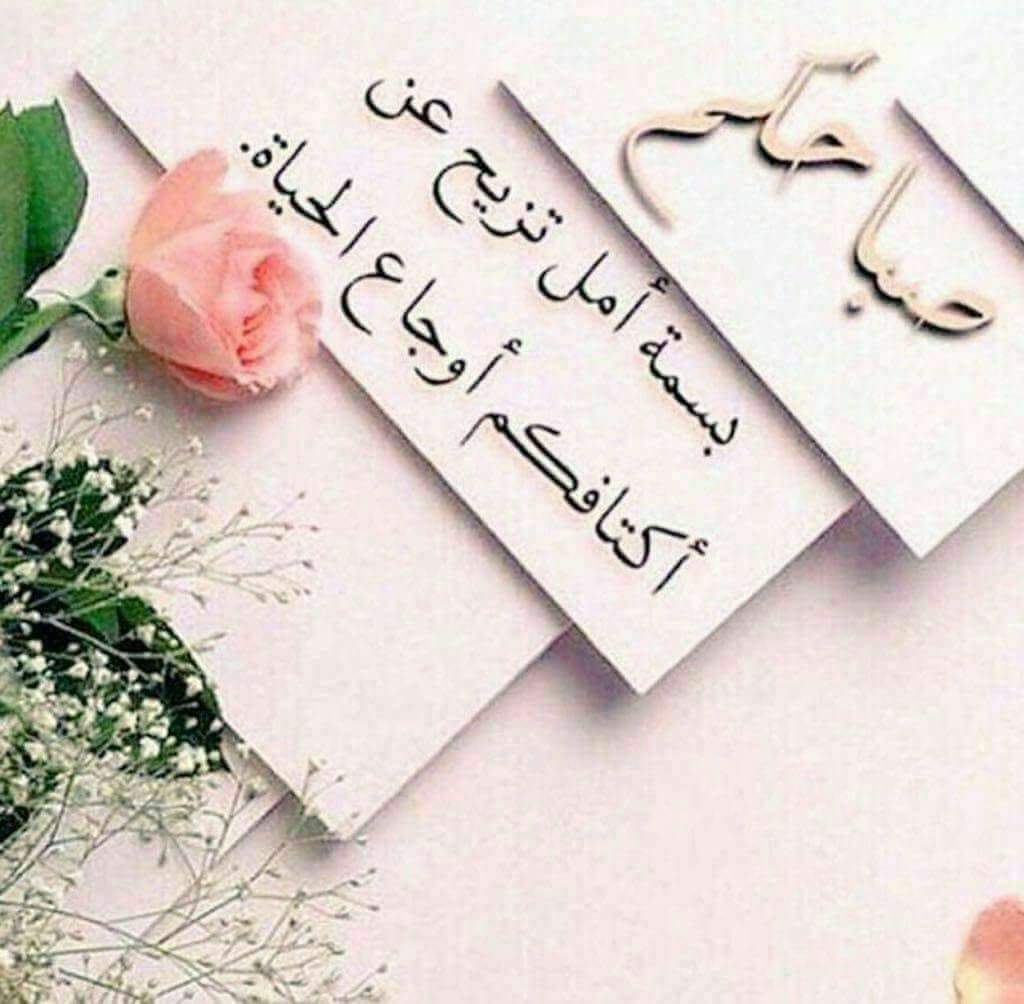 صباحكم
بسمة أمل تزيح عن
أكتافكم أوجاع الحياة.